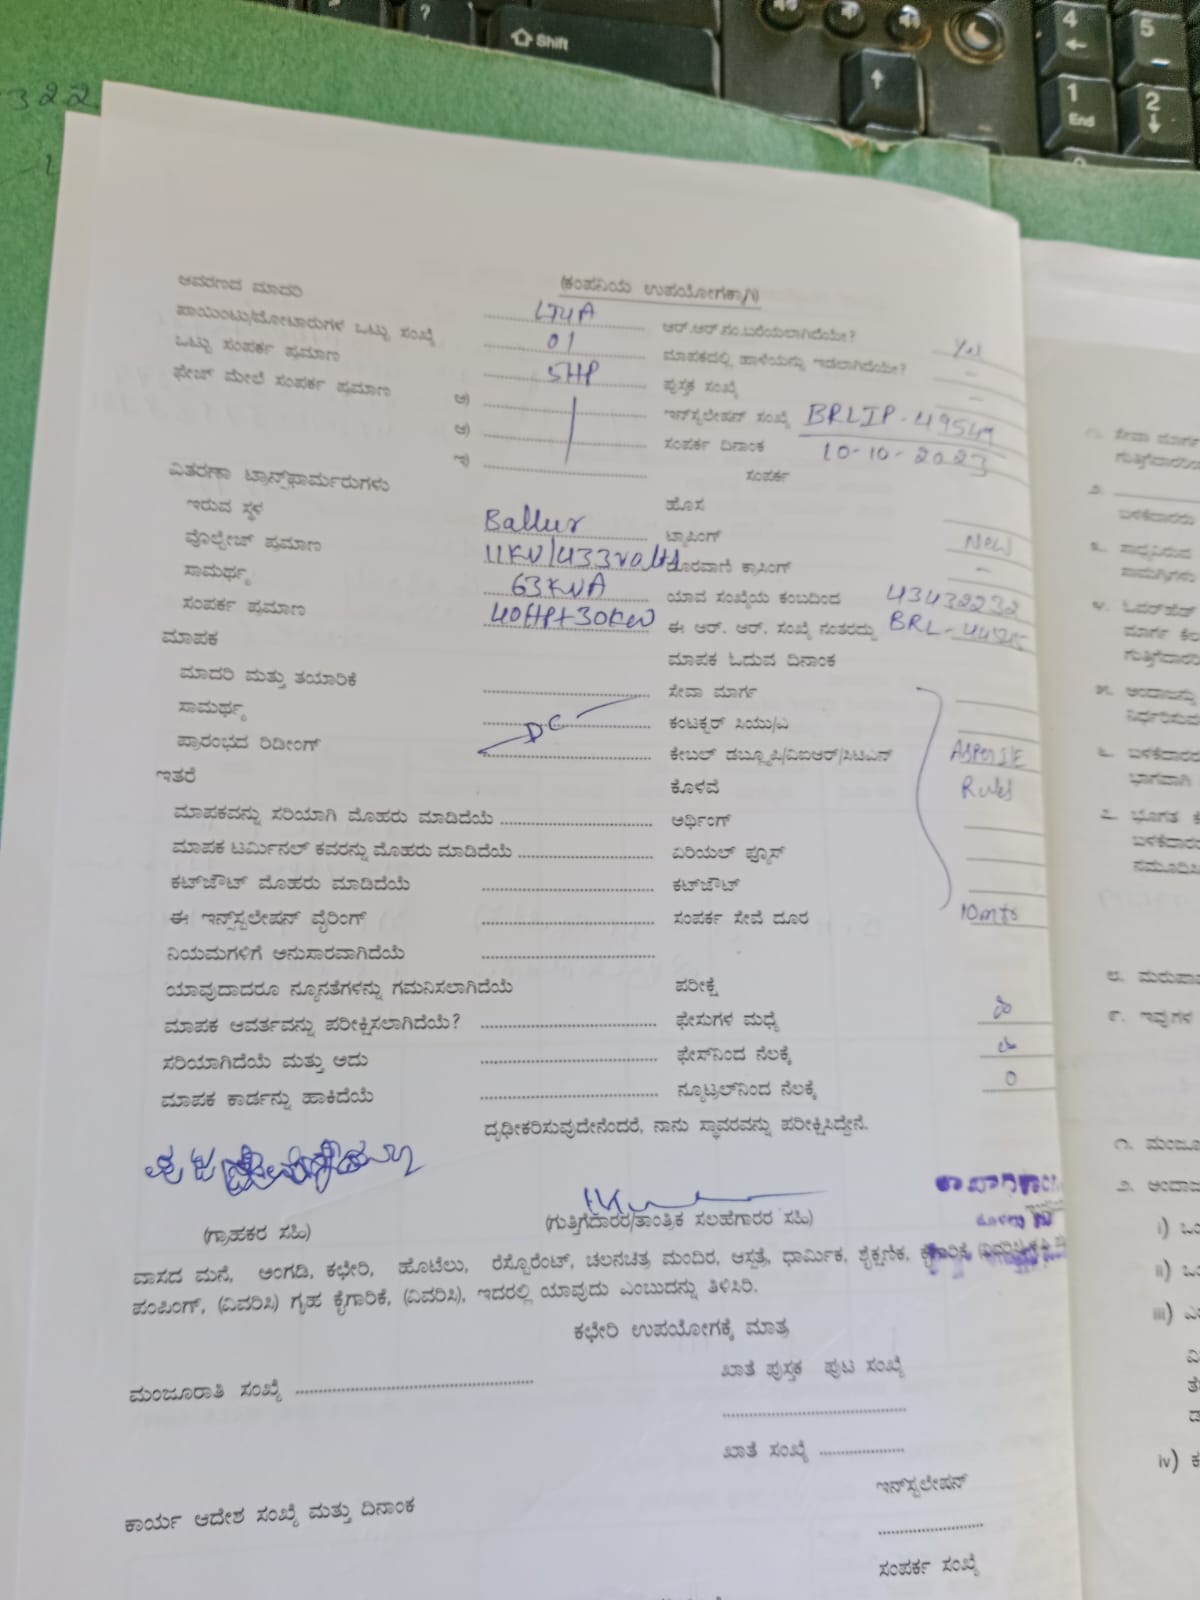 322
? Shift 4 5 1 End 2
(ಕಂಪನಿಯ ಉಪಯೋಗಕ್ಕಾಗಿ)
ಆವರಣದ ಮಾದರಿ LT4A ಆರ್.ಆರ್.ನಂ.ಬರೆಯಲಾಗಿದೆಯೇ? Yes
ಪಾಯಿಂಟು/ಮೋಟಾರುಗಳ ಒಟ್ಟು ಸಂಖ್ಯೆ 01 ಮಾಪಕದಲ್ಲಿ ಹಾಳೆಯನ್ನು ಇಡಲಾಗಿದೆಯೇ? -
ಒಟ್ಟು ಸಂಪರ್ಕ ಪ್ರಮಾಣ 5HP ಪುಸ್ತಕ ಸಂಖ್ಯೆ -
ಫೇಜ್ ಮೇಲೆ ಸಂಪರ್ಕ ಪ್ರಮಾಣ ಅ) ಇನ್‌ಸ್ಟಲೇಷನ್ ಸಂಖ್ಯೆ BRLIP-49549
ಆ) ಸಂಪರ್ಕ ದಿನಾಂಕ 10-10-2023
ಇ) ಸಂಪರ್ಕ
ವಿತರಣಾ ಟ್ರಾನ್ಸ್‌ಫಾರ್ಮರುಗಳು
ಇರುವ ಸ್ಥಳ Ballur ಹೊಸ New
ವೊಲ್ಟೇಜ್ ಪ್ರಮಾಣ 11KV/433volts ಟ್ಯಾಪಿಂಗ್ -
ಸಾಮರ್ಥ್ಯ 63KVA ದೂರವಾಣಿ ಕ್ರಾಸಿಂಗ್
ಸಂಪರ್ಕ ಪ್ರಮಾಣ 40HP+30KW ಯಾವ ಸಂಖ್ಯೆಯ ಕಂಬದಿಂದ 43432232
ಈ ಆರ್. ಆರ್. ಸಂಖ್ಯೆ ನಂತರದ್ದು BRL-
ಮಾಪಕ ಮಾಪಕ ಓದುವ ದಿನಾಂಕ
ಮಾದರಿ ಮತ್ತು ತಯಾರಿಕೆ ಸೇವಾ ಮಾರ್ಗ
ಸಾಮರ್ಥ್ಯ DC ಕಂಟಕ್ಟರ್ ಸಿಯು/ಎ
ಪ್ರಾರಂಭದ ರಿಡೀಂಗ್ ಕೇಬಲ್ ಡಬ್ಲ್ಯೂಪಿ/ವಿಐಆರ್/ಸಿಟಿಎಸ್ ASPER IE
ಇತರೆ ಕೊಳವೆ Rules
ಮಾಪಕವನ್ನು ಸರಿಯಾಗಿ ಮೊಹರು ಮಾಡಿದೆಯೆ ಅರ್ಥಿಂಗ್
ಮಾಪಕ ಟರ್ಮಿನಲ್ ಕವರನ್ನು ಮೊಹರು ಮಾಡಿದೆಯೆ ಏರಿಯಲ್ ಫ್ಯೂಸ್
ಕಟ್‌ಔಟ್ ಮೊಹರು ಮಾಡಿದೆಯೆ ಕಟ್‌ಔಟ್
ಈ ಇನ್ಸ್‌ಸ್ಟಲೇಷನ್ ವೈರಿಂಗ್ ಸಂಪರ್ಕ ಸೇವೆ ದೂರ 10mts
ನಿಯಮಗಳಿಗೆ ಅನುಸಾರವಾಗಿದೆಯೆ
ಯಾವುದಾದರೂ ನ್ಯೂನತೆಗಳನ್ನು ಗಮನಿಸಲಾಗಿದೆಯೆ ಪರೀಕ್ಷೆ
ಮಾಪಕ ಆವರ್ತವನ್ನು ಪರೀಕ್ಷಿಸಲಾಗಿದೆಯೆ? ಫೇಸುಗಳ ಮಧ್ಯೆ
ಸರಿಯಾಗಿದೆಯೆ ಮತ್ತು ಅದು ಫೇಸ್‌ನಿಂದ ನೆಲಕ್ಕೆ
ಮಾಪಕ ಕಾರ್ಡನ್ನು ಹಾಕಿದೆಯೆ ನ್ಯೂಟ್ರಲ್‌ನಿಂದ ನೆಲಕ್ಕೆ 0
ದೃಢೀಕರಿಸುವುದೇನೆಂದರೆ, ನಾನು ಸ್ಥಾವರವನ್ನು ಪರೀಕ್ಷಿಸಿದ್ದೇನೆ.
(ಗ್ರಾಹಕರ ಸಹಿ) (ಗುತ್ತಿಗೆದಾರರ/ತಾಂತ್ರಿಕ ಸಲಹೆಗಾರರ ಸಹಿ)
ವಾಸದ ಮನೆ, ಅಂಗಡಿ, ಕಛೇರಿ, ಹೊಟೆಲು, ರೆಸ್ಟೊರೆಂಟ್, ಚಲನಚಿತ್ರ ಮಂದಿರ, ಆಸ್ಪತ್ರೆ, ಧಾರ್ಮಿಕ, ಶೈಕ್ಷಣಿಕ, ಕೈಗಾರಿಕೆ (ವಿವರಿಸಿ)
ಪಂಪಿಂಗ್, (ವಿವರಿಸಿ) ಗೃಹ ಕೈಗಾರಿಕೆ, (ವಿವರಿಸಿ), ಇದರಲ್ಲಿ ಯಾವುದು ಎಂಬುದನ್ನು ತಿಳಿಸಿರಿ.
ಕಛೇರಿ ಉಪಯೋಗಕ್ಕೆ ಮಾತ್ರ
ಮಂಜೂರಾತಿ ಸಂಖ್ಯೆ ಖಾತೆ ಪುಸ್ತಕ ಪುಟ ಸಂಖ್ಯೆ
ಖಾತೆ ಸಂಖ್ಯೆ
ಇನ್‌ಸ್ಟಲೇಷನ್
ಕಾರ್ಯ ಆದೇಶ ಸಂಖ್ಯೆ ಮತ್ತು ದಿನಾಂಕ
ಸಂಪರ್ಕ ಸಂಖ್ಯೆ